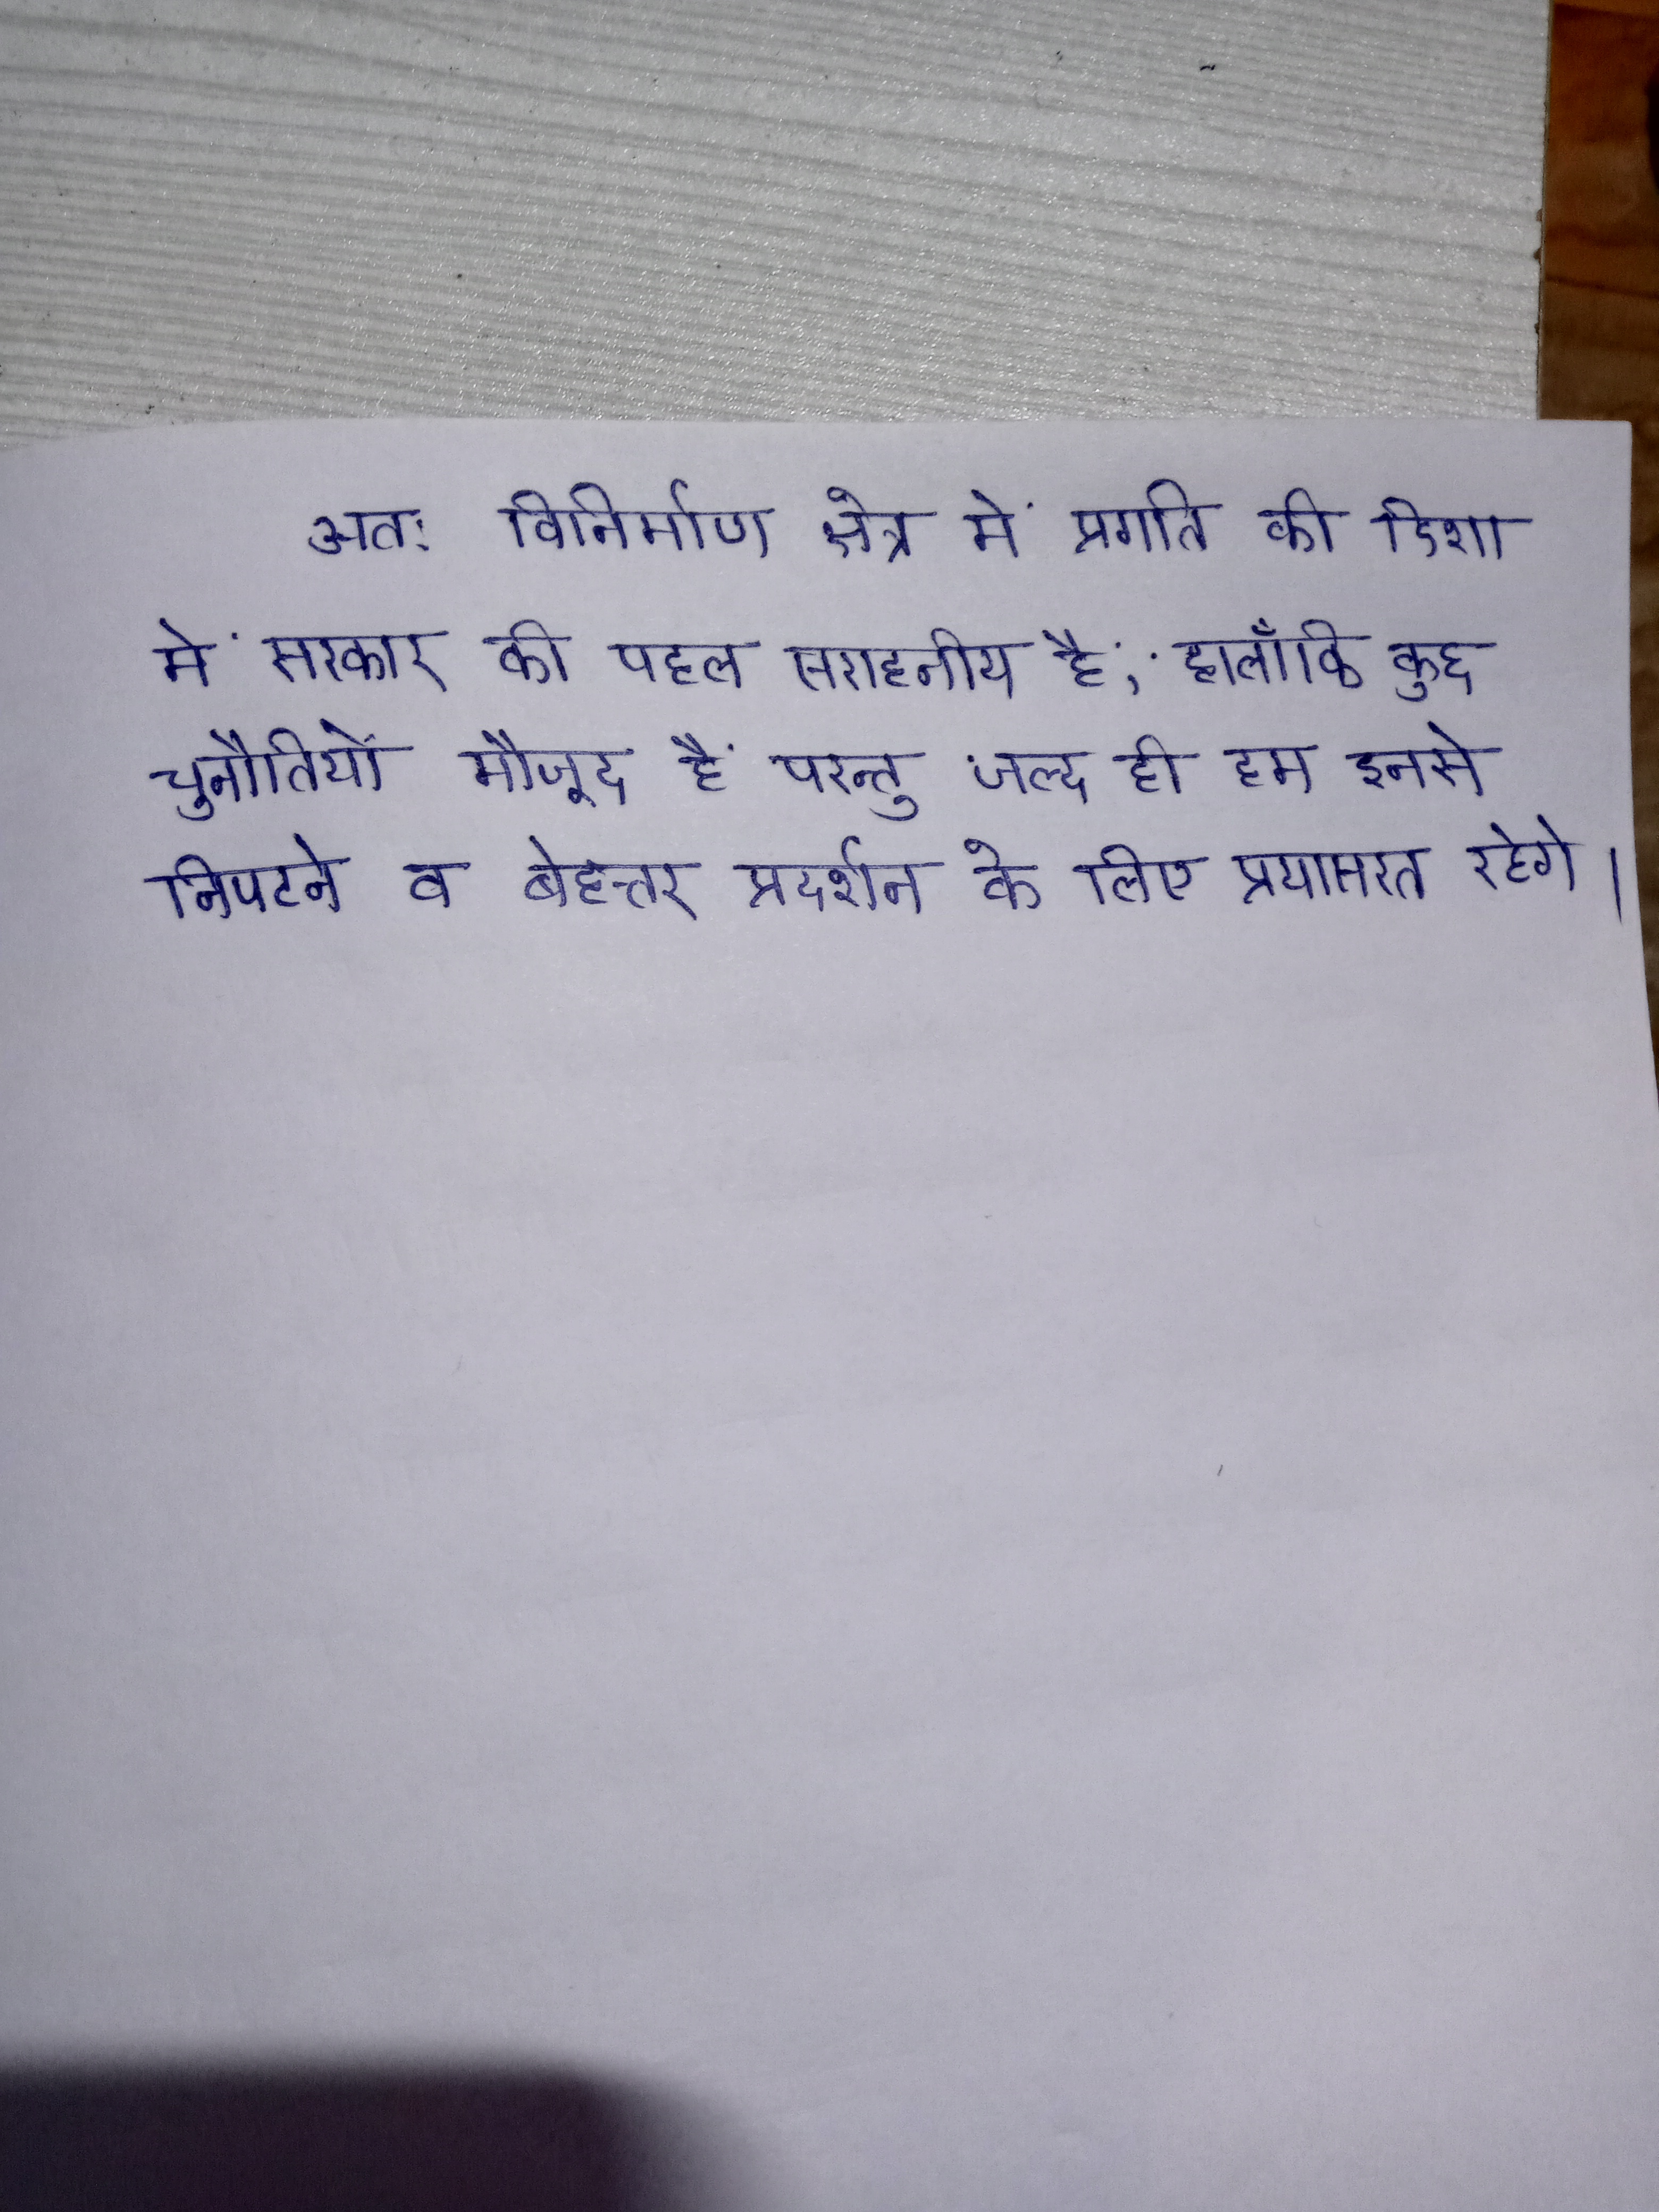 अतः विनिर्माण क्षेत्र में प्रगति की दिशा
में सरकार की पहल सराहनीय है; हालाँकि कुछ
चुनौतियों मौजूद हैं परन्तु जल्द ही हम इनसे
निपटने व बेहत्तर प्रदर्शन के लिए प्रयासरत रहेगे।